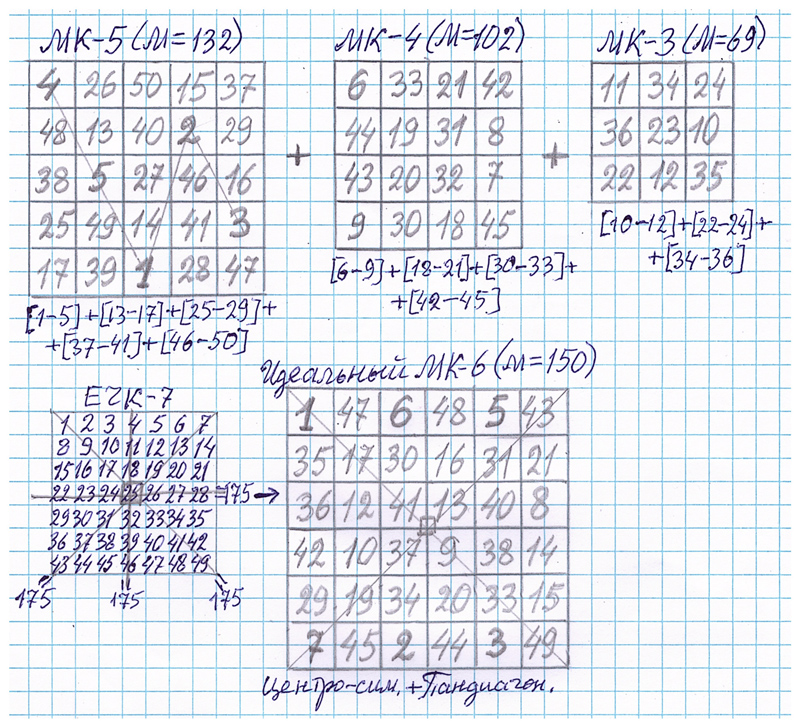 МК-5 (М=132)
4 26 50 15 37
48 13 40 2 29
38 5 27 46 16
25 49 14 41 3
17 39 1 28 47
[1-5]+[13-17]+[25-29]+
+[37-41]+[46-50]
+
МК-4 (М=102)
6 33 21 42
44 19 31 8
43 20 32 7
9 30 18 45
[6-9]+[18-21]+[30-33]+
+[42-45]
+
МК-3 (М=69)
11 34 24
36 23 10
22 12 35
[10-12]+[22-24]+
+[34-36]
ЕЧК-7
1 2 3 4 5 6 7
8 9 10 11 12 13 14
15 16 17 18 19 20 21
22 23 24 25 26 27 28 =175
29 30 31 32 33 34 35
36 37 38 39 40 41 42
43 44 45 46 47 48 49
175 175 175
Идеальный МК-6 (М=150)
1 47 6 48 5 43
35 17 30 16 31 21
36 12 41 13 40 8
42 10 37 9 38 14
29 19 34 20 33 15
7 45 2 44 3 49
Центро-сим. + Пандиагон.